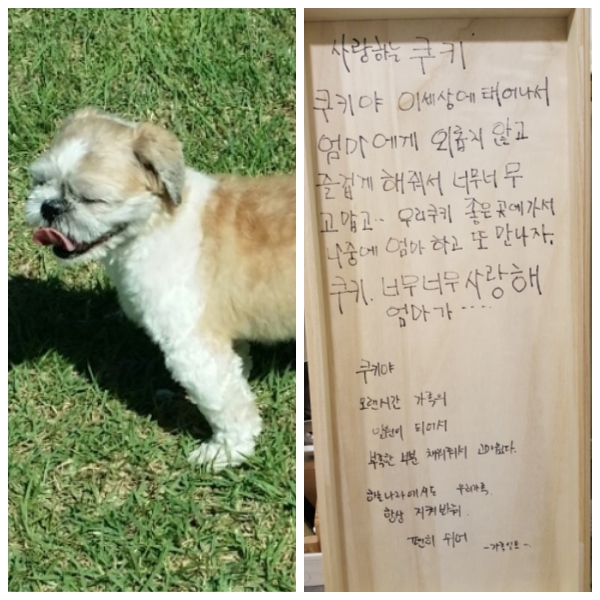 사랑하는 쿠키
쿠키야 이세상에 태어나서
엄마에게 외롭지 않고
즐겁게 해줘서 너무너무
고맙고.. 우리쿠키 좋은곳에가서
나중에 엄마하고 또 만나자.
쿠키. 너무너무사랑해
엄마가 ....
쿠키야
오랜시간 가족의
일원이 되어서
부족한 부분 채워줘서 고마웠다.
하늘나라에서도 우리가족
항상 지켜봐줘.
편히 쉬어
-가족일동-